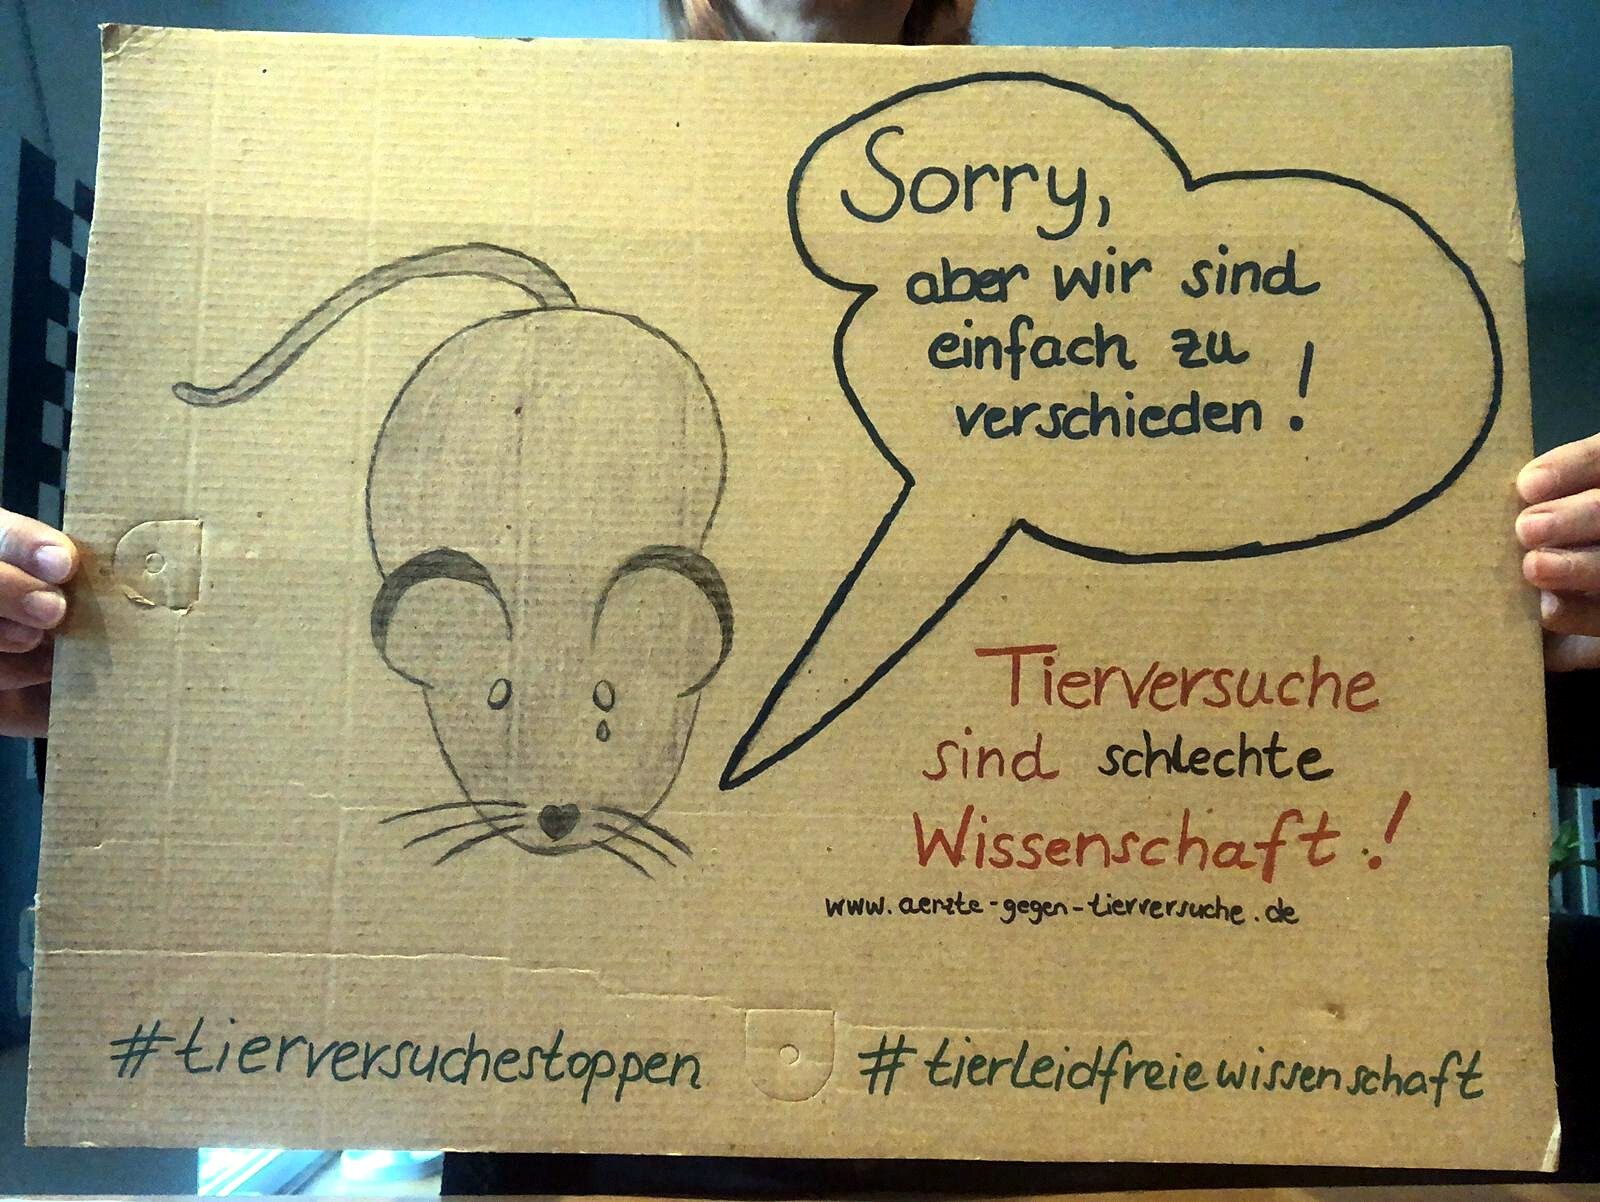 Sorry,
aber wir sind
einfach zu
verschieden!
Tierversuche
sind schlechte
Wissenschaft!
www.aerzte-gegen-tierversuche.de
#tierversuchestoppen #tierleidfreiewissenschaft